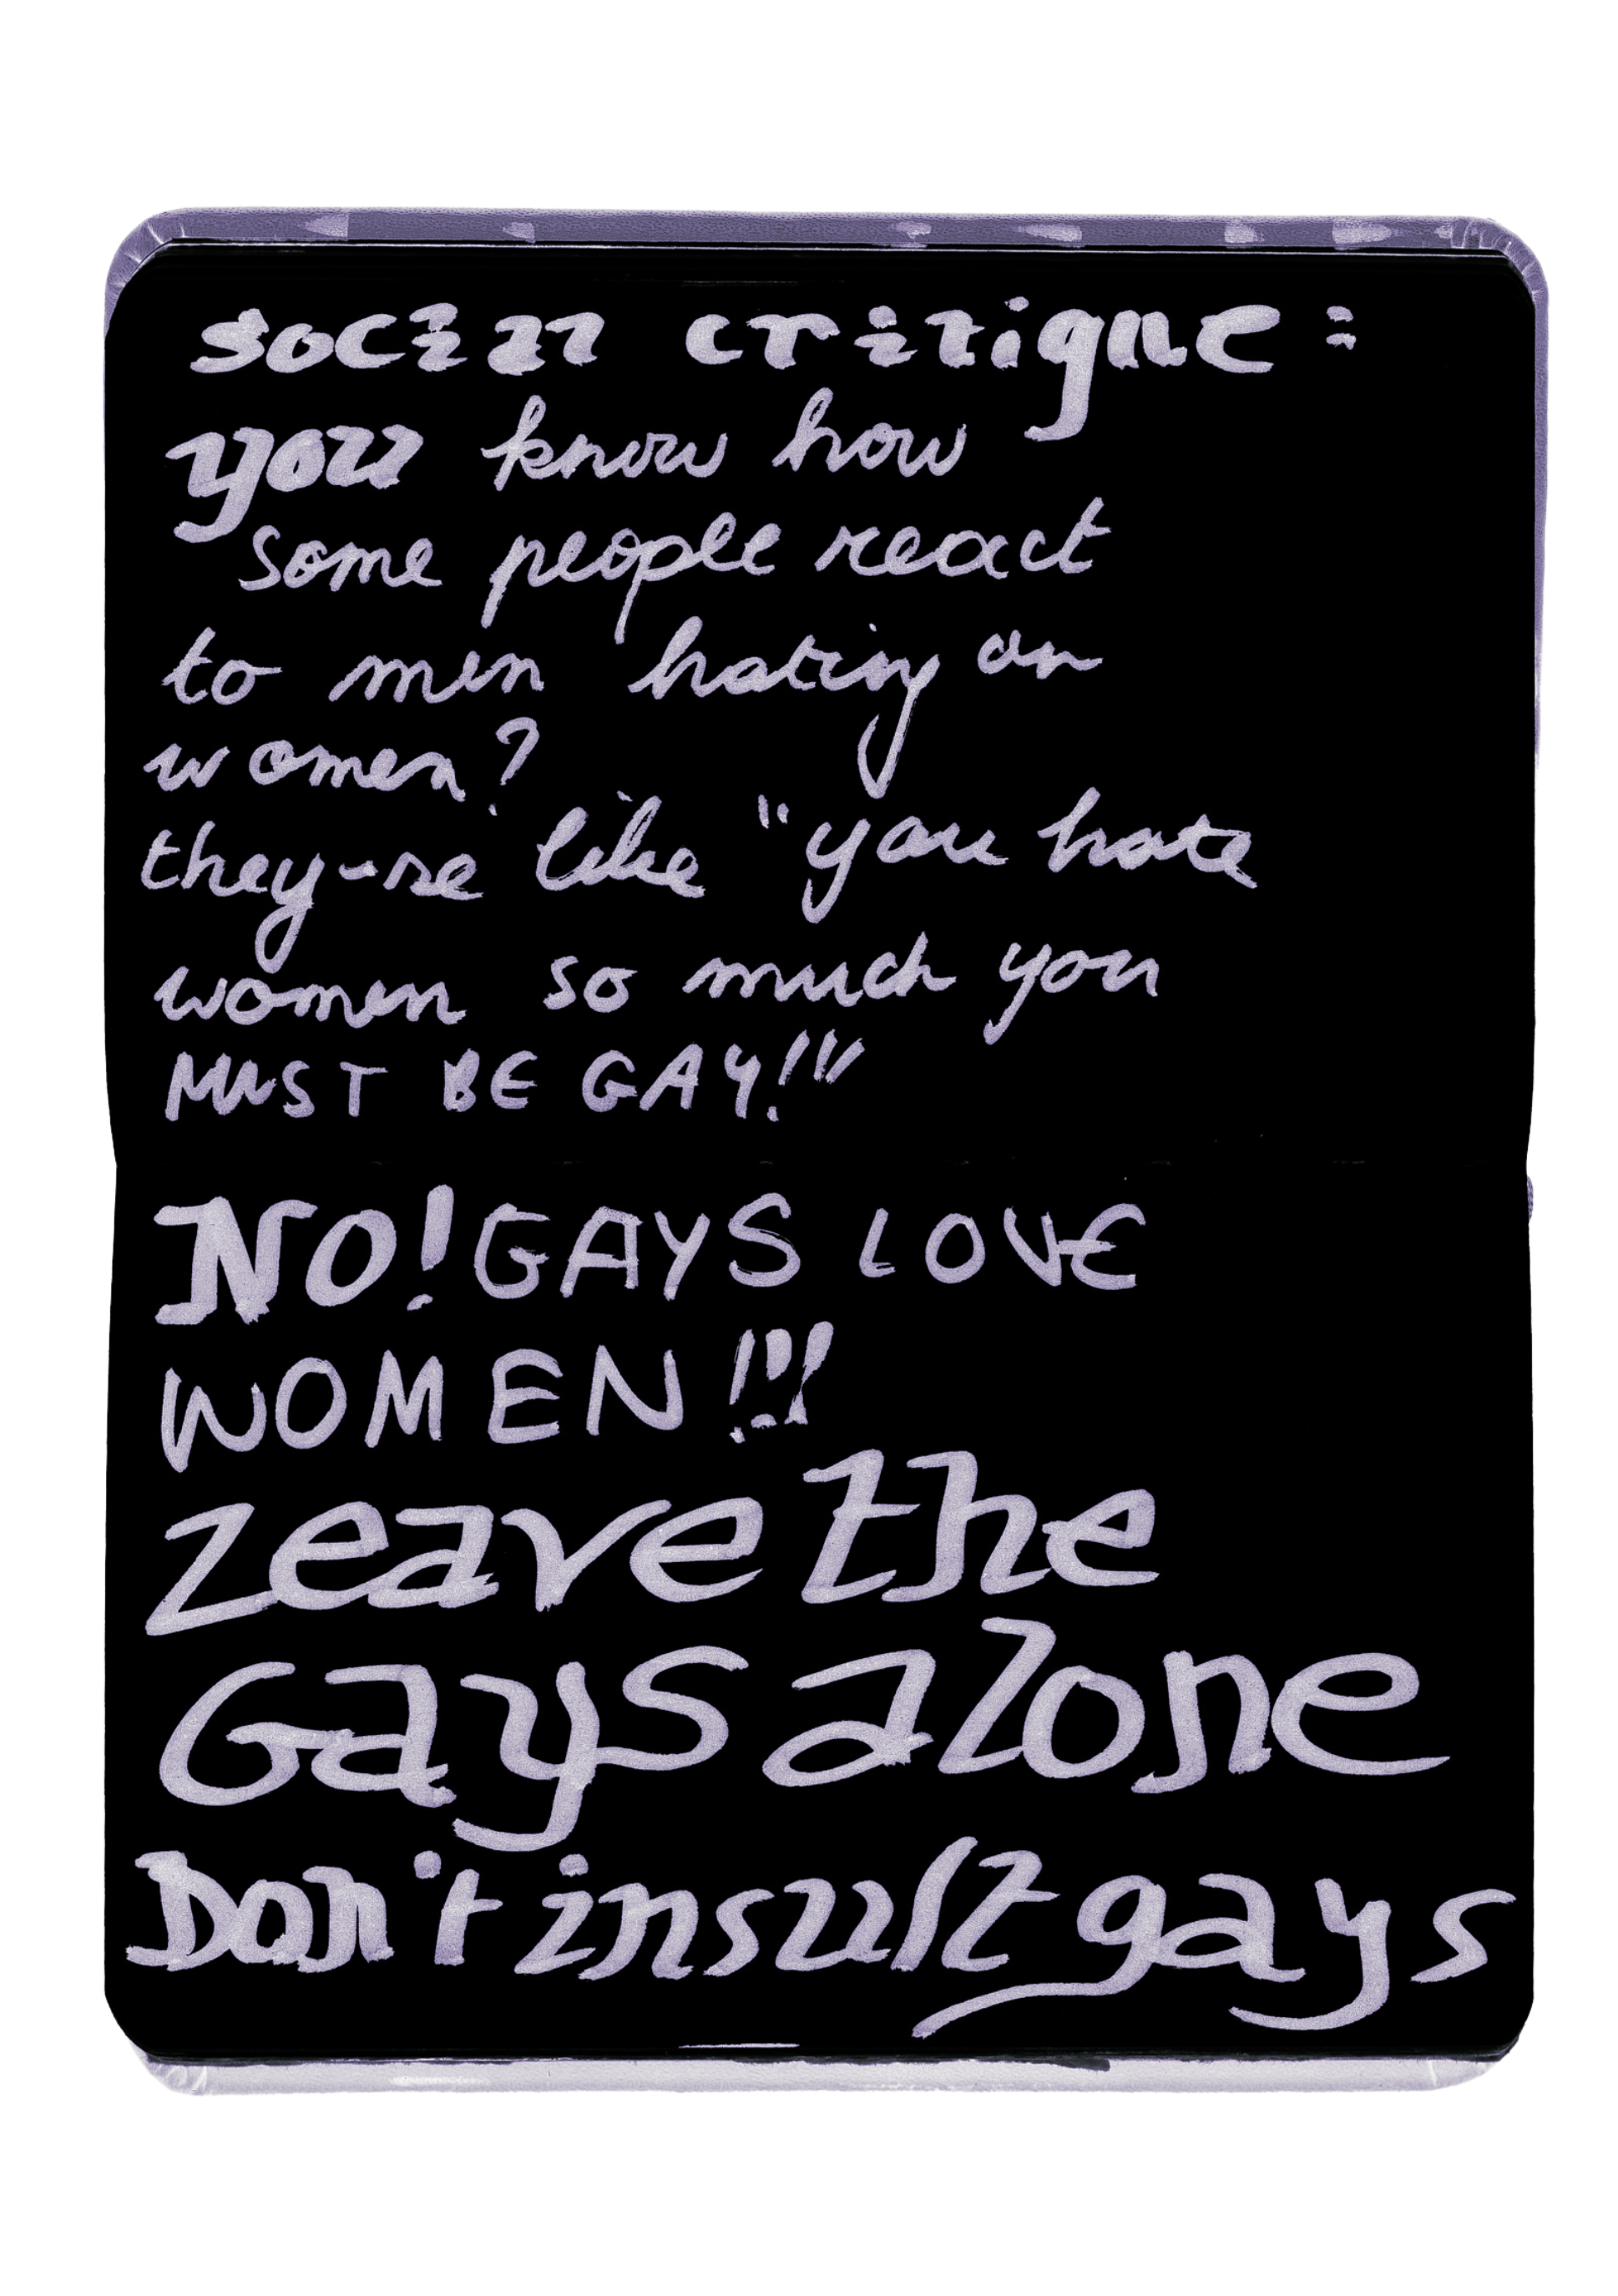 social critique:
you know how
some people react
to men hating on
women?
they-re like "you hate
women so much you
MUST BE GAY!"
NO! GAYS LOVE
WOMEN!!!
Leave the
Gays alone
Don't insult gays